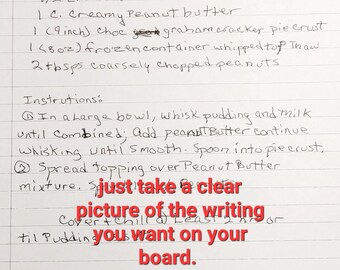 1 C. Creamy Peanut butter
1 (9inch) choc grahamcracker piecrust
1 (8oz) frozen container whipped top Thaw
2 tbsps coarsely chopped peanuts
Instrutions:
① In a Large bowl, whisk pudding and milk
until Combined; Add peanut Butter continue
whisking until Smooth. Spoon into piecrust.
② Spread topping over Peanut Butter
mixture.
just take a clear
picture of the writing
you want on your
board.
Cover + Chill at Least 2 or
til Pudding